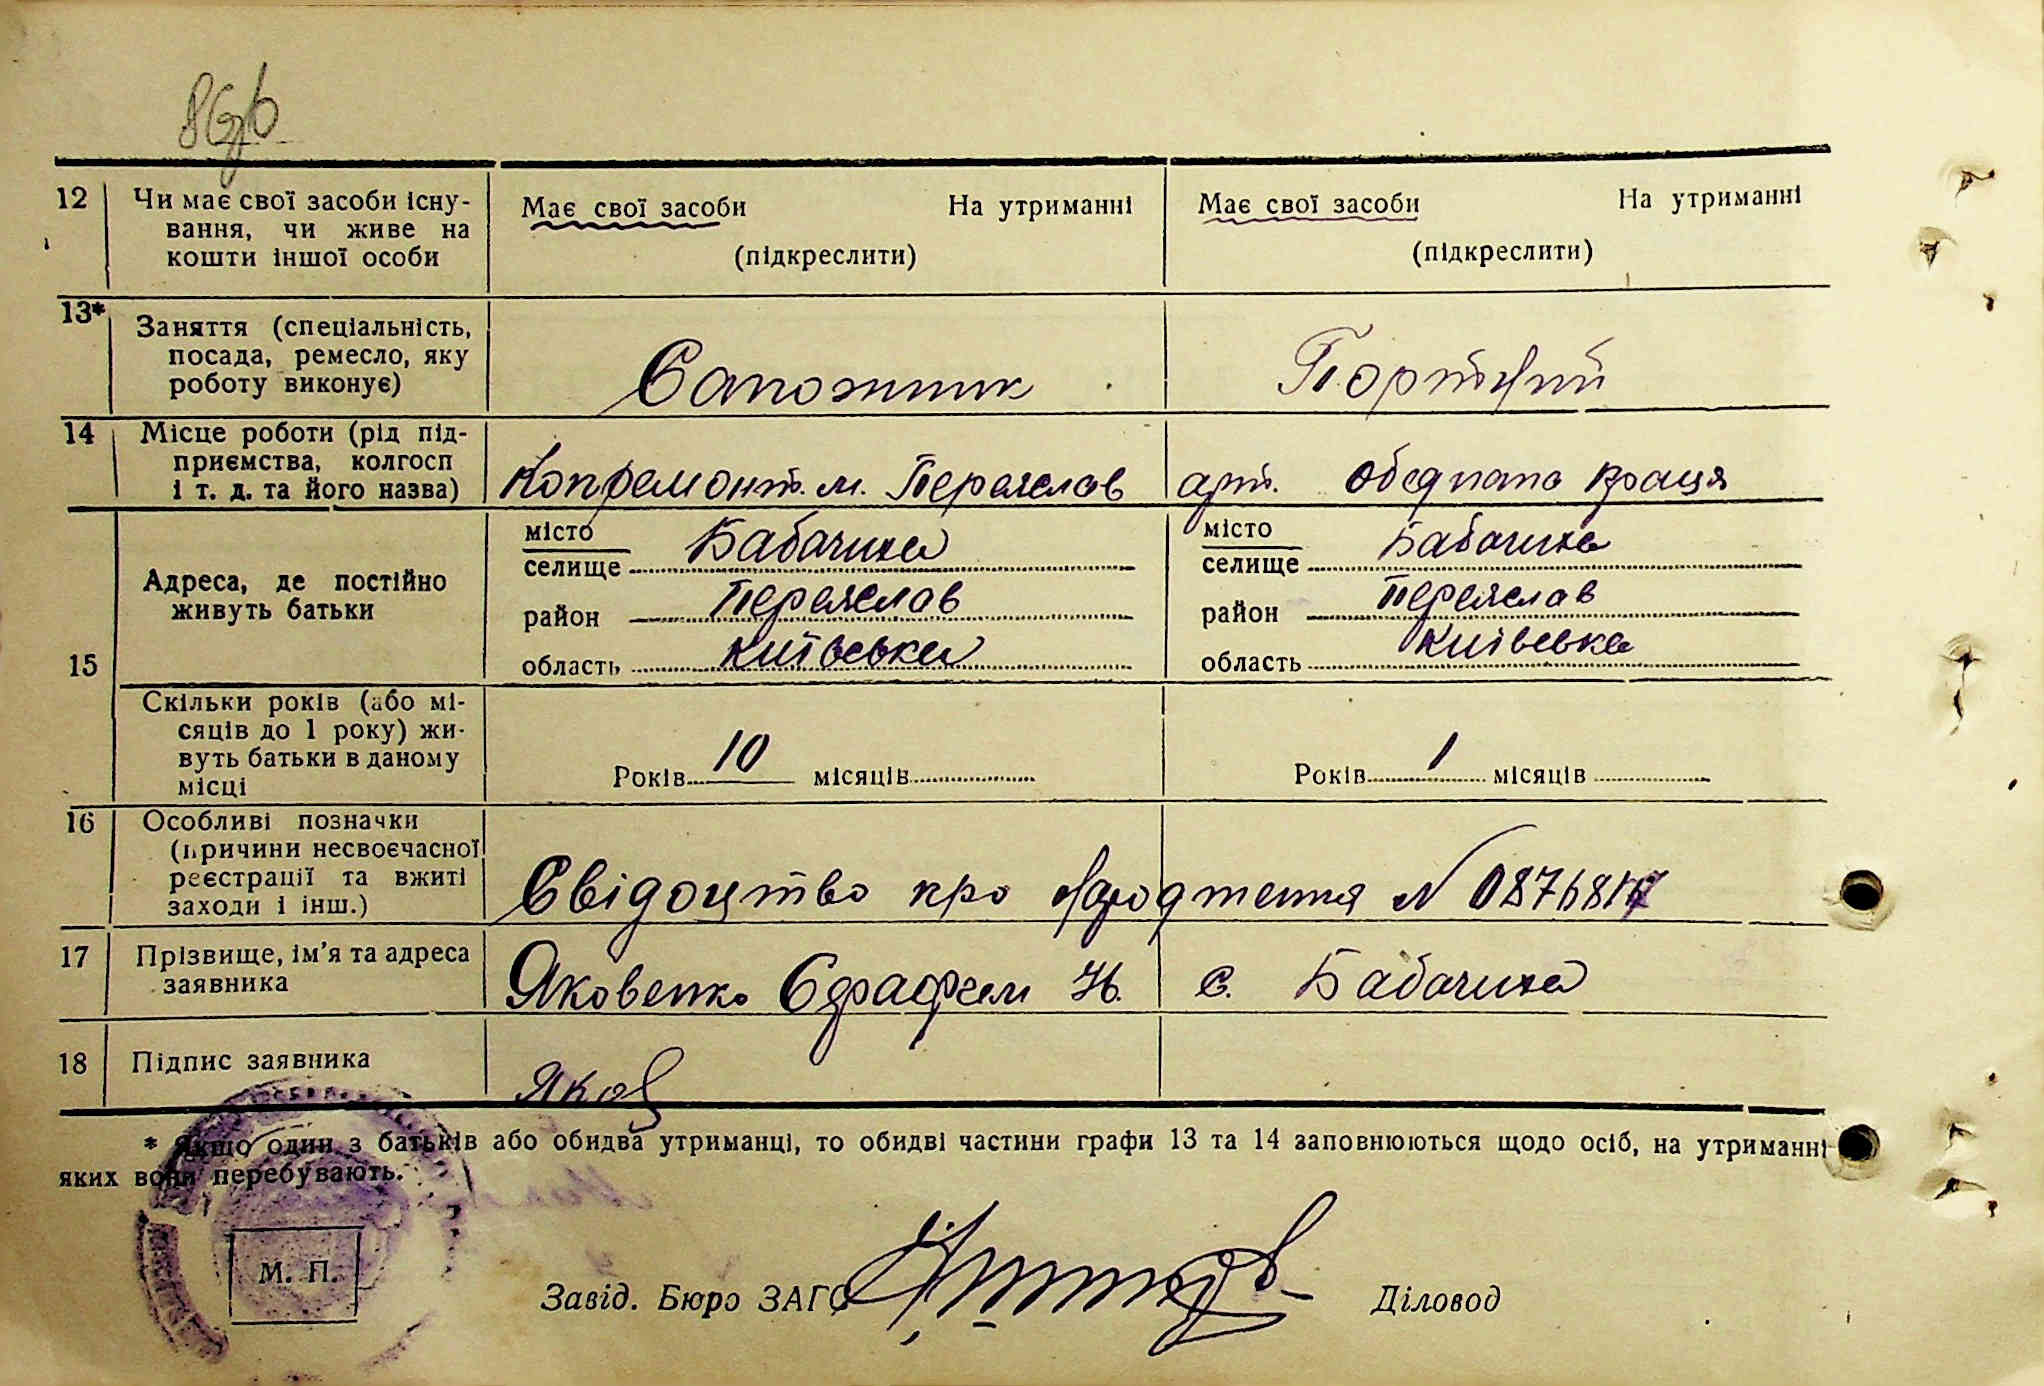 12 Чи має свої засоби існу- Має свої засоби На утриманні Має свої засоби На утриманні
вання, чи живе на
кошти іншої особи (підкреслити) (підкреслити)
13* Заняття (спеціальність,
посада, ремесло, яку
роботу виконує) Сапожник Портний
14 Місце роботи (рід під-
приємства, колгосп
і т. д. та його назва) Копремонт. м. Переяслав арт. Обєднана Праця
місто Бабачиха місто Бабачиха
селище селище
Адреса, де постійно
живуть батьки район Переяслав район Переяслав
15 область Київська область Київська
Скільки років (або мі-
сяців до 1 року) жи-
вуть батьки в даному
місці Років 10 місяців Років 1 місяців
16 Особливі позначки
(причини несвоєчасної
реєстрації та вжиті
заходи і інш.) Свідоцтво про народження N
17 Прізвище, ім'я та адреса
заявника Яковенко Н. с. Бабачиха
18 Підпис заявника Яков
* Якщо один з батьків або обидва утриманці, то обидві частини графи 13 та 14 заповнюються щодо осіб, на утриманні
яких вони перебувають.
М. П.
Завід. Бюро ЗАГС Діловод